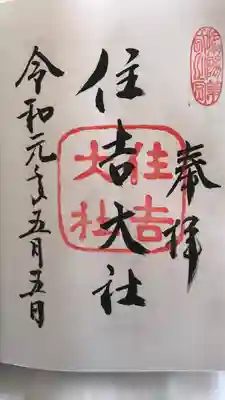 奉拝
住吉大社
住吉
大社
令和元年五月五日